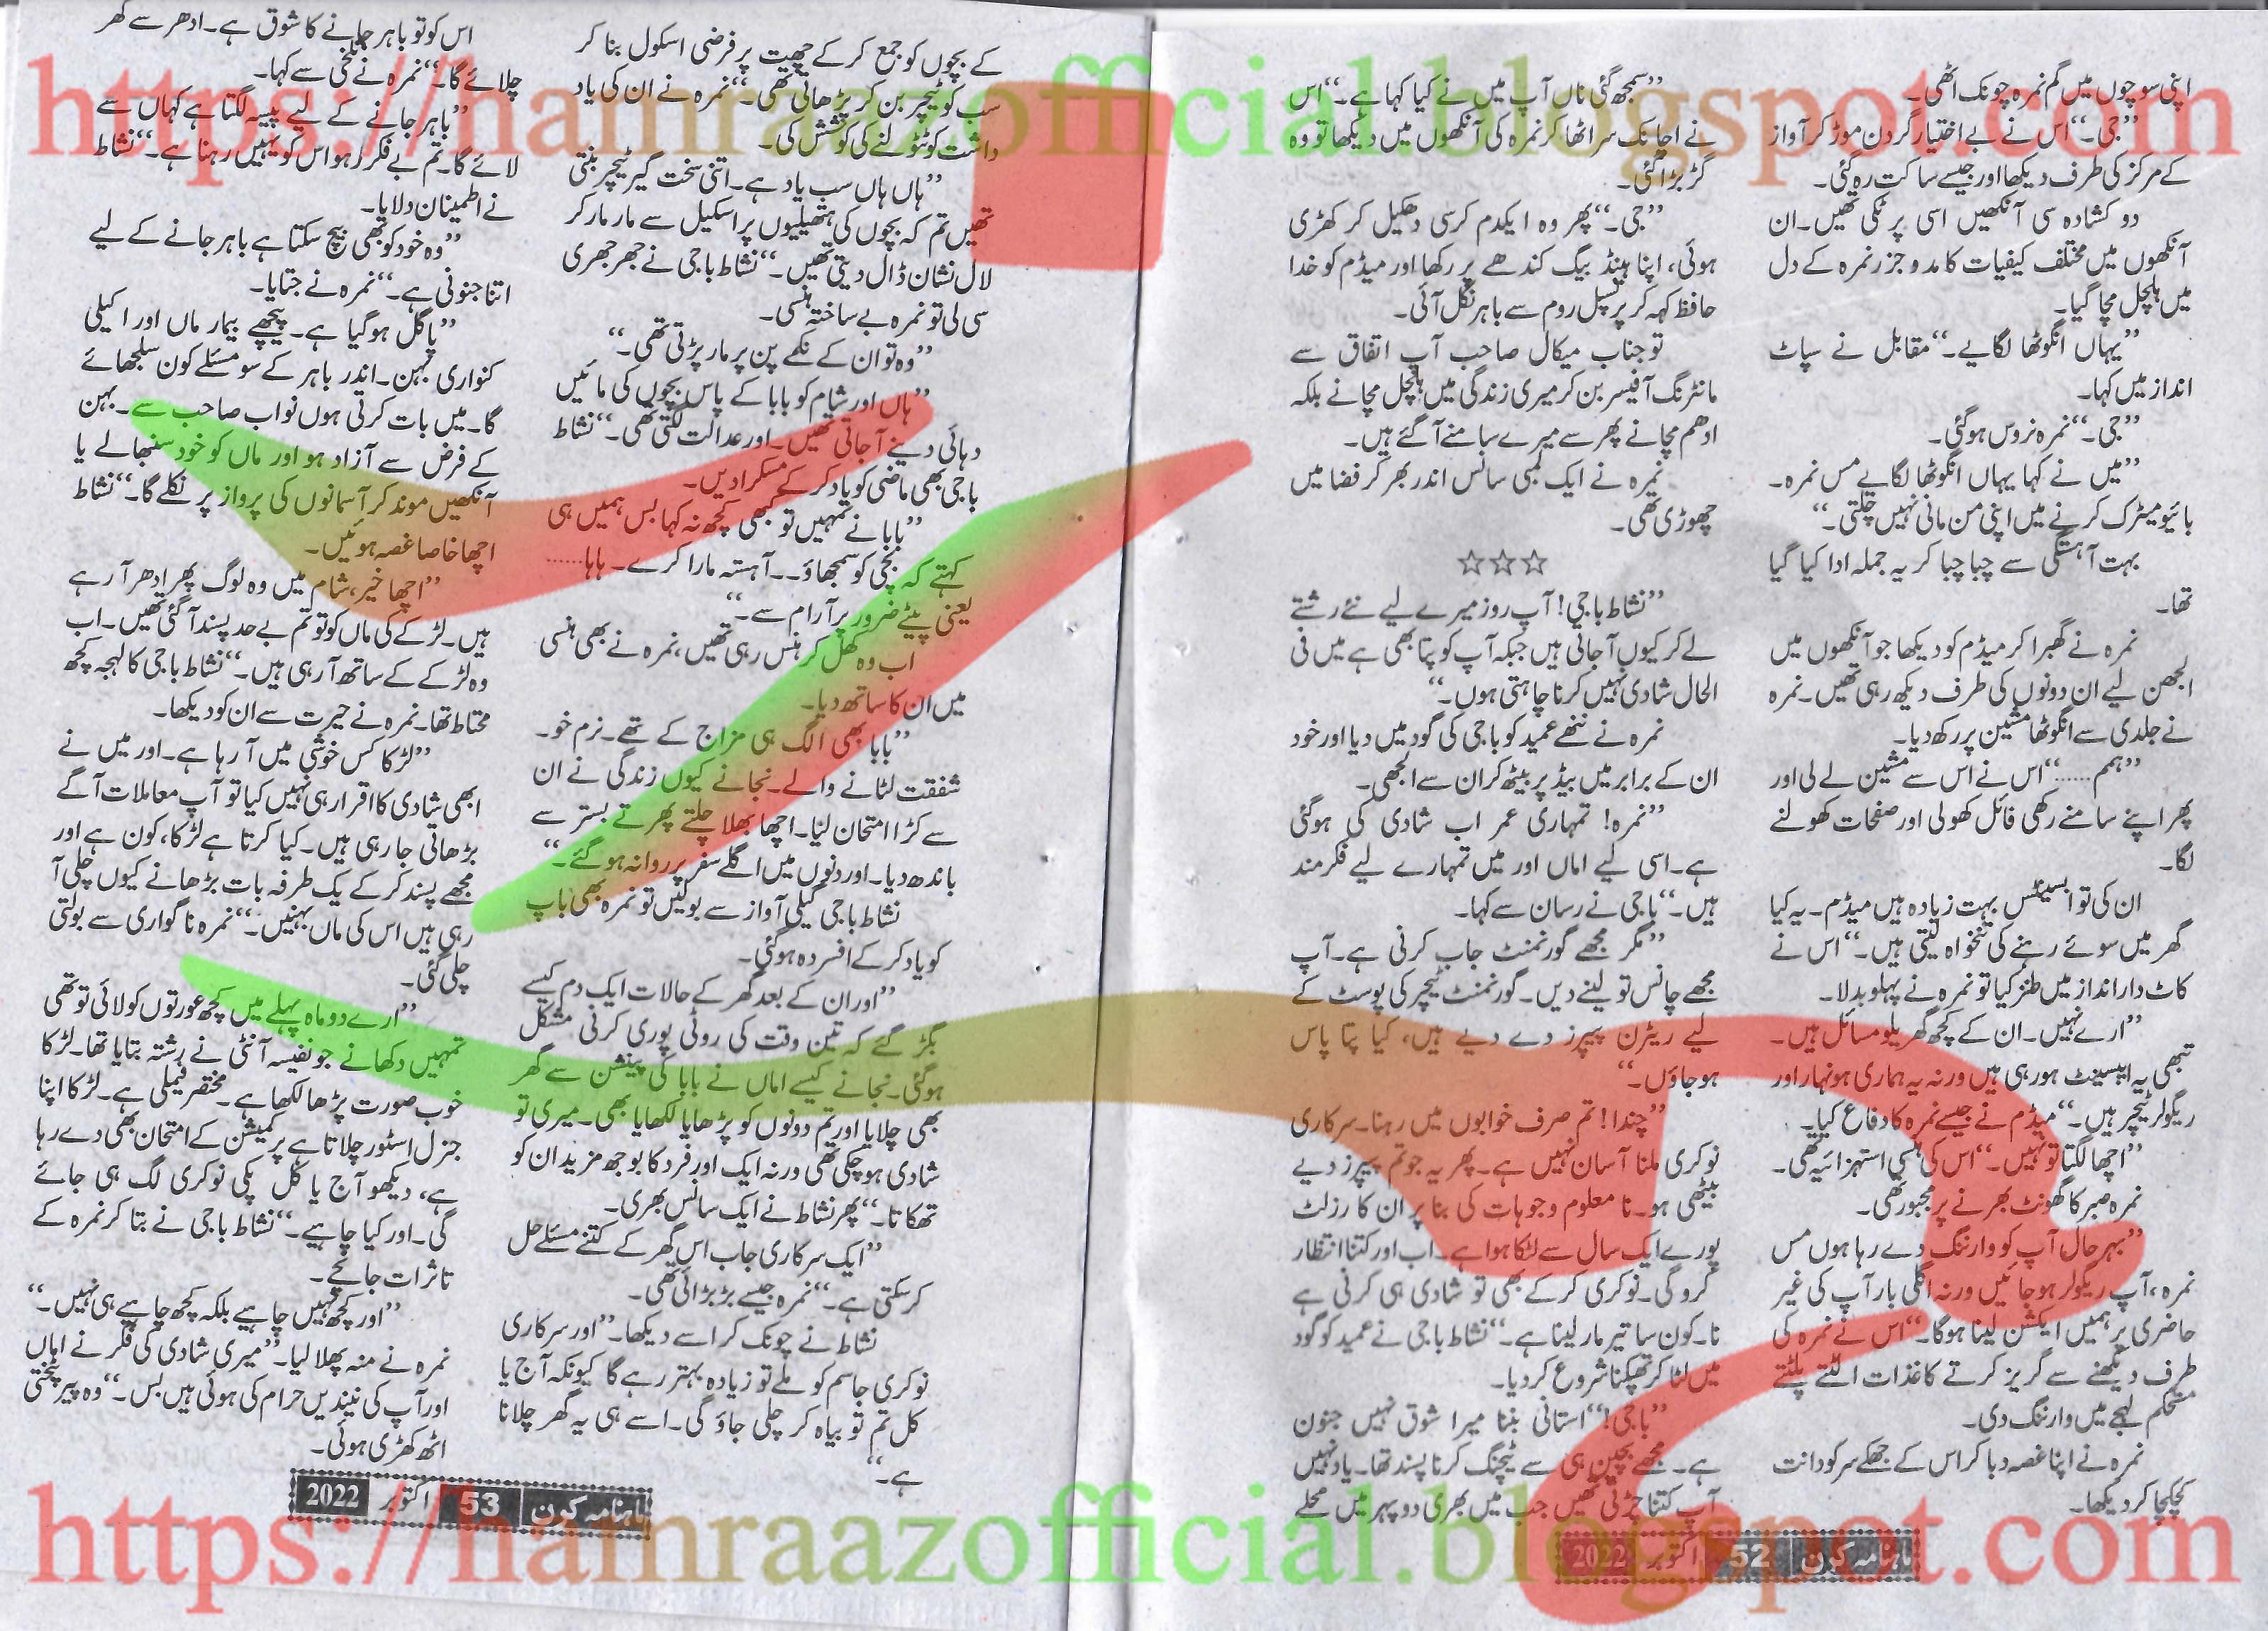 https://hamraazofficial.blogspot.com
اپنی سوچوں میں گم نمرہ چونک اٹھی۔
”جی۔“ اس نے بے اختیار گردن موڑ کر آواز
کے مرکز کی طرف دیکھا اور جیسے ساکت رہ گئی۔
دو کشادہ سی آنکھیں اسی پر ٹکی تھیں۔ ان
آنکھوں میں مختلف کیفیات کا مدوجزر نمرہ کے دل
میں ہلچل مچا گیا۔
”یہاں انگوٹھا لگایے۔“ مقابل نے سپاٹ
انداز میں کہا۔
”جی۔“ نمرہ نروس ہوگئی۔
”میں نے کہا یہاں انگوٹھا لگایے مس نمرہ۔
بائیو میٹرک کرنے میں اپنی من مانی نہیں چلتی۔“
بہت آہستگی سے چبا چبا کر یہ جملہ ادا کیا گیا
تھا۔
نمرہ نے گھبرا کر میڈم کو دیکھا جو آنکھوں میں
الجھن لیے ان دونوں کی طرف دیکھ رہی تھیں۔ نمرہ
نے جلدی سے انگوٹھا مشین پر رکھ دیا۔
”ہمم......“ اس نے اس سے مشین لے لی اور
پھر اپنے سامنے رکھی فائل کھولی اور صفحات کھولنے
لگا۔
ان کی تو ابسینٹس بہت زیادہ ہیں میڈم۔ یہ کیا
گھر میں سوئے رہنے کی تنخواہ لیتی ہیں۔“ اس نے
کاٹ دار انداز میں طنز کیا تو نمرہ نے پہلو بدلا۔
”ارے نہیں۔ ان کے کچھ گھریلو مسائل ہیں۔
تبھی یہ ابسینٹ ہو رہی ہیں ورنہ یہ ہماری ہونہار اور
ریگولر ٹیچر ہیں۔“ میڈم نے جیسے نمرہ کا دفاع کیا۔
”اچھا لگتا تو نہیں۔“ اس کی ہنسی استہزائیہ تھی۔
نمرہ صبر کا گھونٹ بھرنے پر مجبور تھی۔
”بہرحال آپ کو وارننگ دے رہا ہوں مس
نمرہ، آپ ریگولر ہو جائیں ورنہ اگلی بار آپ کی غیر
حاضری پر ہمیں ایکشن لینا ہوگا۔“ اس نے نمرہ کی
طرف دیکھنے سے گریز کرتے کاغذات الٹتے پلٹتے
مستحکم لہجے میں وارننگ دی۔
نمرہ نے اپنا غصہ دبا کر اس کے جھکے سر کو دانت
کچکچا کر دیکھا۔
”سمجھ گئی ناں آپ میں نے کیا کہا ہے۔“ اس
نے اچانک سر اٹھا کر نمرہ کی آنکھوں میں دیکھا تو وہ
گڑبڑا گئی۔
”جی۔“ پھر وہ ایکدم کرسی دھکیل کر کھڑی
ہوئی، اپنا ہینڈ بیگ کندھے پر رکھا اور میڈم کو خدا
حافظ کہہ کر پرنسپل روم سے باہر نکل آئی۔
تو جناب میکال صاحب آپ اتفاق سے
مانٹرنگ آفیسر بن کر میری زندگی میں ہلچل مچانے بلکہ
ادھم مچانے پھر سے میرے سامنے آگئے ہیں۔
نمرہ نے ایک لمبی سانس اندر بھر کر فضا میں
چھوڑی تھی۔
☆☆☆
”نشاط باجی! آپ روز میرے لیے نئے رشتے
لے کر کیوں آ جاتی ہیں جبکہ آپ کو پتا بھی ہے میں فی
الحال شادی نہیں کرنا چاہتی ہوں۔“
نمرہ نے ننھے عمید کو باجی کی گود میں دیا اور خود
ان کے برابر میں بیڈ پر بیٹھ کر ان سے الجھی۔
”نمرہ! تمہاری عمر اب شادی کی ہوگئی
ہے۔ اسی لیے اماں اور میں تمہارے لیے فکرمند
ہیں۔“ باجی نے رسان سے کہا۔
”مگر مجھے گورنمنٹ جاب کرنی ہے۔ آپ
مجھے چانس تو لینے دیں۔ گورنمنٹ ٹیچر کی پوسٹ کے
لیے ریٹرن پیپرز دے دیے ہیں، کیا پتا پاس
ہو جاؤں۔“
”چندا! تم صرف خوابوں میں رہنا۔ سرکاری
نوکری ملنا آسان نہیں ہے۔ پھر یہ جو تم پیپرز دیے
بیٹھی ہو۔ نا معلوم وجوہات کی بنا پر ان کا رزلٹ
پورے ایک سال سے لٹکا ہوا ہے۔ اب اور کتنا انتظار
کرو گی۔ نوکری کر کے بھی تو شادی ہی کرنی ہے
نا۔ کون سا تیر مار لینا ہے۔“ نشاط باجی نے عمید کو گود
میں لٹا کر تھپکنا شروع کر دیا۔
”باجی!“ استانی بننا میرا شوق نہیں جنون
ہے۔ مجھے بچپن ہی سے ٹیچنگ کرنا پسند تھا۔ یاد نہیں
آپ کتنا چڑتی تھیں جب میں بھری دوپہر میں محلے
ماہنامہ کرن 52 اکتوبر 2022
کے بچوں کو جمع کر کے چھت پر فرضی اسکول بنا کر
سب کو ٹیچر بن کر پڑھاتی تھی۔“ نمرہ نے ان کی یاد
داشت کو ٹٹولنے کی کوشش کی۔
”ہاں ہاں سب یاد ہے۔ اتنی سخت گیر ٹیچر بنتی
تھیں تم کہ بچوں کی ہتھیلیوں پر اسکیل سے مار مار کر
لال نشان ڈال دیتی تھیں۔“ نشاط باجی نے جھرجھری
سی لی تو نمرہ بے ساختہ ہنسی۔
”وہ تو ان کے نکمے پن پر مار پڑتی تھی۔“
”ہاں اور شام کو بابا کے پاس بچوں کی مائیں
دہائی دینے آ جاتی تھیں۔ اور عدالت لگتی تھی۔“ نشاط
باجی بھی ماضی کو یاد کر کے مسکرا دیں۔
”بابا نے تمہیں تو کبھی کچھ نہ کہا بس ہمیں ہی
کہتے کہ بچی کو سمجھاؤ۔۔ آہستہ مارا کرے۔ ہاہا......
یعنی پیٹے ضرور پر آرام سے۔“
اب وہ کھل کر ہنس رہی تھیں، نمرہ نے بھی ہنسی
میں ان کا ساتھ دیا۔
”بابا بھی الگ ہی مزاج کے تھے۔ نرم خو۔
شفقت لٹانے والے۔ نجانے کیوں زندگی نے ان
سے کڑا امتحان لیا۔ اچھا بھلا چلتے پھرتے بستر سے
باندھ دیا۔ اور دنوں میں اگلے سفر پر روانہ ہو گئے۔“
نشاط باجی گیلی آواز سے بولیں تو نمرہ بھی باپ
کو یاد کر کے افسردہ ہوگئی۔
”اور ان کے بعد گھر کے حالات ایک دم کیسے
بگڑ گئے کہ تین وقت کی روٹی پوری کرنی مشکل
ہوگئی۔ نجانے کیسے اماں نے بابا کی پینشن سے گھر
بھی چلایا اور تم دونوں کو پڑھایا لکھایا بھی۔ میری تو
شادی ہو چکی تھی ورنہ ایک اور فرد کا بوجھ مزید ان کو
تھکاتا۔“ پھر نشاط نے ایک سانس بھری۔
”ایک سرکاری جاب اس گھر کے کتنے مسئلے حل
کر سکتی ہے۔“ نمرہ جیسے بڑبڑائی تھی۔
نشاط نے چونک کر اسے دیکھا۔ ”اور سرکاری
نوکری جاسم کو ملے تو زیادہ بہتر رہے گا کیونکہ آج یا
کل تم تو بیاہ کر چلی جاؤ گی۔ اسے ہی یہ گھر چلانا
ہے۔“
اس کو تو باہر جانے کا شوق ہے۔ ادھر سے گھر
چلائے گا۔“ نمرہ نے تلخی سے کہا۔
”باہر جانے کے لیے پیسہ لگتا ہے کہاں سے
لائے گا۔ تم بے فکر رہو اس کو یہیں رہنا ہے۔“ نشاط
نے اطمینان دلایا۔
”وہ خود کو بھی بیچ سکتا ہے باہر جانے کے لیے
اتنا جنونی ہے۔“ نمرہ نے جتایا۔
”پاگل ہو گیا ہے۔ پیچھے بیمار ماں اور اکیلی
کنواری بہن۔ اندر باہر کے سو مسئلے کون سلجھائے
گا۔ میں بات کرتی ہوں نواب صاحب سے۔ بہن
کے فرض سے آزاد ہو اور ماں کو خود سنبھالے یا
آنکھیں موند کر آسمانوں کی پرواز پر نکلے گا۔“ نشاط
اچھا خاصا غصہ ہوئیں۔
”اچھا خیر، شام میں وہ لوگ پھر ادھر آ رہے
ہیں۔ لڑکے کی ماں کو تو تم بے حد پسند آ گئی تھیں۔ اب
وہ لڑکے کے ساتھ آ رہی ہیں۔“ نشاط باجی کا لہجہ کچھ
محتاط تھا۔ نمرہ نے حیرت سے ان کو دیکھا۔
”لڑکا کس خوشی میں آ رہا ہے۔ اور میں نے
ابھی شادی کا اقرار ہی نہیں کیا تو آپ معاملات آگے
بڑھاتی جا رہی ہیں۔ کیا کرتا ہے لڑکا، کون ہے اور
مجھے پسند کر کے یک طرفہ بات بڑھانے کیوں چلی آ
رہی ہیں اس کی ماں بہنیں۔“ نمرہ ناگواری سے بولتی
چلی گئی۔
”ارے دو ماہ پہلے میں کچھ عورتوں کو لائی تو تھی
تمہیں دکھانے جو نفیسہ آنٹی نے رشتہ بتایا تھا۔ لڑکا
خوب صورت پڑھا لکھا ہے۔ مختصر فیملی ہے۔ لڑکا اپنا
جنرل اسٹور چلاتا ہے پر کمیشن کے امتحان بھی دے رہا
ہے، دیکھو آج یا کل پکی نوکری لگ ہی جائے
گی۔ اور کیا چاہیے۔“ نشاط باجی نے بتا کر نمرہ کے
تاثرات جانچے۔
”اور کچھ نہیں چاہیے بلکہ کچھ چاہیے ہی نہیں۔“
نمرہ نے منہ پھلا لیا۔ ”میری شادی کی فکر نے اماں
اور آپ کی نیندیں حرام کی ہوئی ہیں بس۔“ وہ پیر پٹختی
اٹھ کھڑی ہوئی۔
ماہنامہ کرن 53 اکتوبر 2022
https://hamraazofficial.blogspot.com